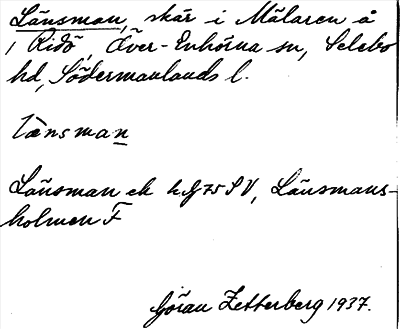 Länsman, skär i Mälaren å
Ridö, Över-Enhörna sn, Selebo
hd, Södermanlands l.
lænsman
Länsman ek hJ75SV, Länsmans-
holmen F
Göran Zetterberg 1937.